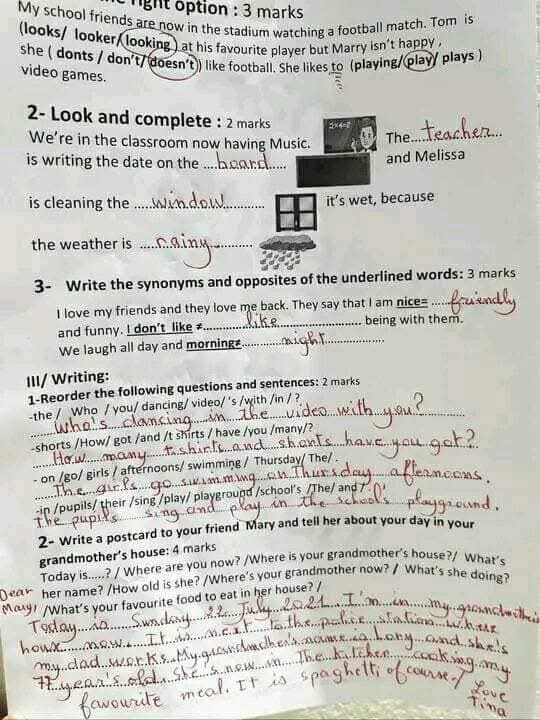 right option : 3 marks
My school friends are now in the stadium watching a football match. Tom is
(looks/ looker/ looking ) at his favourite player but Marry isn't happy ,
she ( donts / don't/ doesn't ) like football. She likes to (playing/ play/ plays )
video games.
2- Look and complete : 2 marks
We're in the classroom now having Music. The....teacher...
is writing the date on the ....board..... and Melissa
is cleaning the .....window............ it's wet, because
the weather is ....rainy............
3- Write the synonyms and opposites of the underlined words: 3 marks
I love my friends and they love me back. They say that I am nice= .....friendly
and funny. I don't like ≠...........like........................ being with them.
We laugh all day and morning≠..............night...................
III/ Writing:
1-Reorder the following questions and sentences: 2 marks
-the / Who / you/ dancing/ video/ 's /with /in / ?
Who's dancing in the video with you?
-shorts /How/ got /and /t shirts / have /you /many/?
How many t.shirts and shorts have you got?
- on /go/ girls / afternoons/ swimming / Thursday/ The/ .
The girls go swimming on Thursday afternoons.
-in /pupils/ their /sing /play/ playground /school's /The/ and /
The pupils sing and play in the school's playground.
2- Write a postcard to your friend Mary and tell her about your day in your
grandmother's house: 4 marks
Today is.....? / Where are you now? /Where is your grandmother's house?/ What's
her name? /How old is she? /Where's your grandmother now? / What's she doing?
/What's your favourite food to eat in her house? /
Dear
Mary,
Today is Sunday 22 July 2021 I'm in my grandmother's
house now. It is next to the police station where
my dad works. My grandmother's name is Lory and she's
77 year's old. She's now in The kitchen cooking my
favourite meal. It is spaghetti of course!
Love
Tina